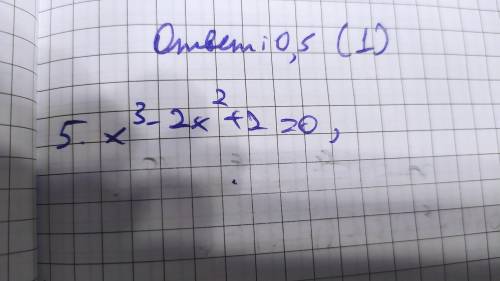 Ответ: 0,5 (1)
5. x³-2x²+2=0,